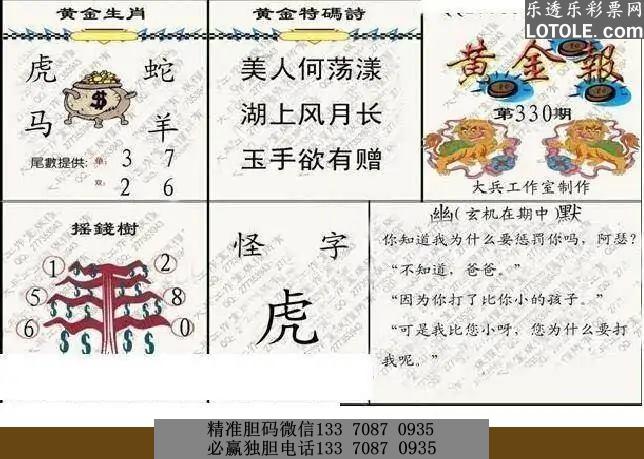 乐透乐彩票网
LOTOLE.COM
黄金生肖
虎 蛇
马 羊
尾數提供:单:3 7
双:2 6
黄金特碼詩
美人何荡漾
湖上风月长
玉手欲有赠
黄金報
第330期
大兵工作室制作
摇錢樹
1 2
5 8
6 0
怪 字
虎
幽(玄机在期中)默
你知道我为什么要惩罚你吗，阿瑟?
“不知道，爸爸。”
“因为你打了比你小的孩子。”
“可是我比您小呀，您为什么要打
我呢。”
精准胆码微信133 7087 0935
必赢独胆电话133 7087 0935